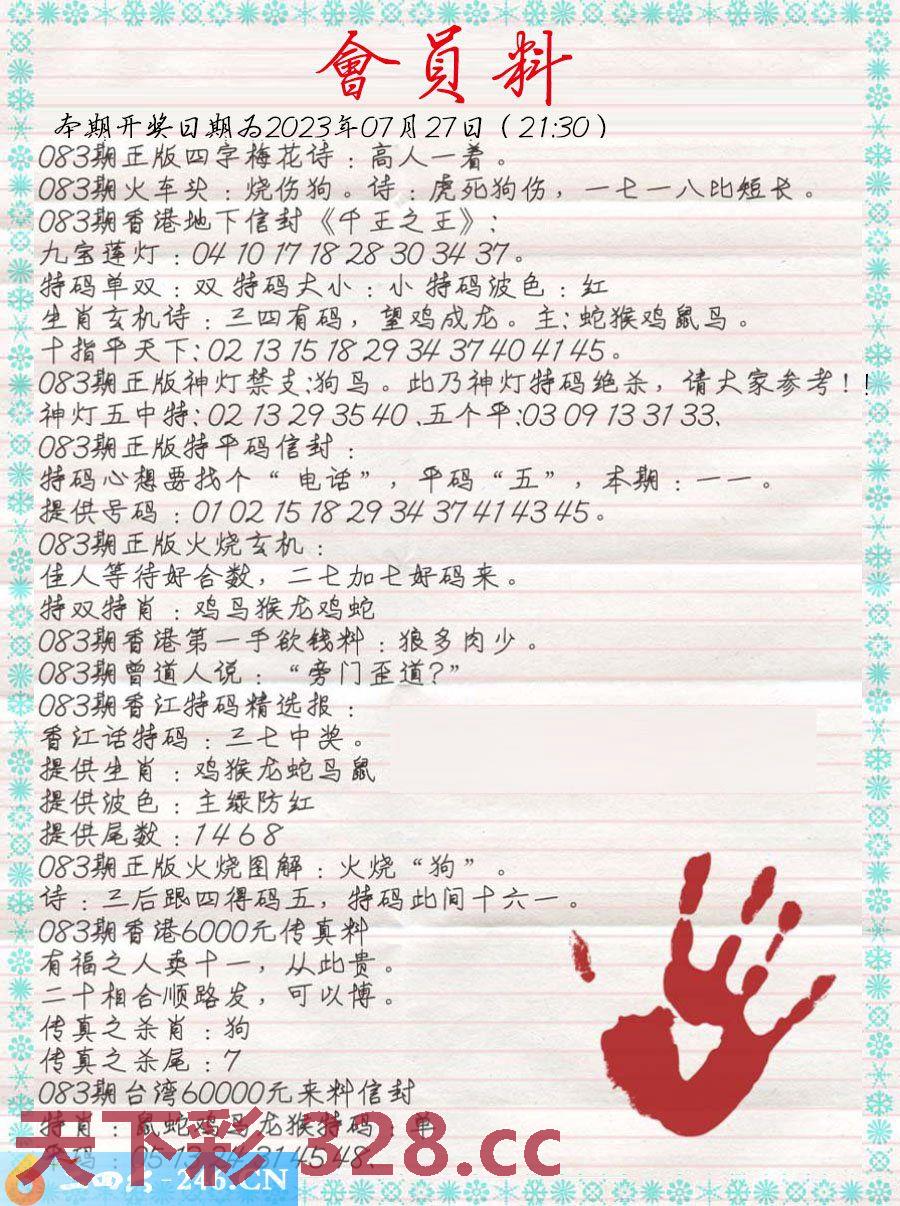 會員料
本期开奖日期为2023年07月27日（21:30）
083期正版四字梅花诗：高人一着。
083期火车头：烧伤狗。诗：虎死狗伤，一七一八比短长。
083期香港地下信封《千王之王》：
九宝莲灯：04 10 17 18 28 30 34 37。
特码单双：双 特码大小：小 特码波色：红
生肖玄机诗：三四有码，望鸡成龙。主：蛇猴鸡鼠马。
十指平天下：02 13 15 18 29 34 37 40 41 45。
083期正版神灯禁支:狗马。此乃神灯特码绝杀，请大家参考！！
神灯五中特：02 13 29 35 40、五个平:03 09 13 31 33、
083期正版特平码信封：
特码心想要找个“电话”，平码“五”，本期：一一。
提供号码：01 02 15 18 29 34 37 41 43 45。
083期正版火烧玄机：
佳人等待好合数，二七加七好码来。
特双特肖：鸡马猴龙鸡蛇
083期香港第一手欲钱料：狼多肉少。
083期曾道人说：“旁门歪道？”
083期香江特码精选报：
香江话特码：三七中奖。
提供生肖：鸡猴龙蛇马鼠
提供波色：主绿防红
提供尾数：1 4 6 8
083期正版火烧图解：火烧“狗”。
诗：三后跟四得码五，特码此间十六一。
083期香港6000元传真料
有福之人卖十一，从此贵。
二十相合顺路发，可以博。
传真之杀肖：狗
传真之杀尾：7
083期台湾60000元来料信封
特肖：鼠蛇鸡马龙猴特码：单
天下彩 328.cc
二四六-246.CN